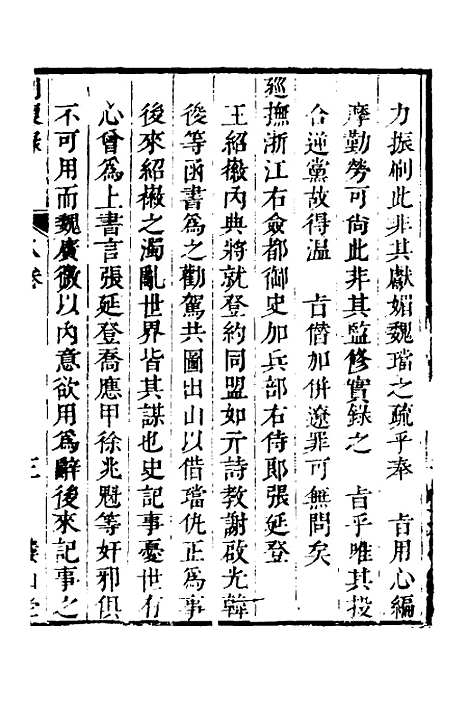 力振刷此非其獻媚魏璫之疏乎奉　旨用心編
摩勤勞可尚此非其監修實錄之　旨乎唯其投
合逆黨故得温　旨僭加併遼罪可無問矣
廵撫浙江右僉都御史加兵部右侍郎張延登
王紹徽內典將就登約同盟如亓詩教謝啟光韓
後等函書爲之勸駕共圖出山以借璫仇正爲事
後來紹徽之濁亂世界皆其謀也史記事憂世有
心曾爲上書言張延登喬應甲徐兆魁等奸邪俱
不可用而魏廣微以內意欲用爲辭後來記事之
八卷
三